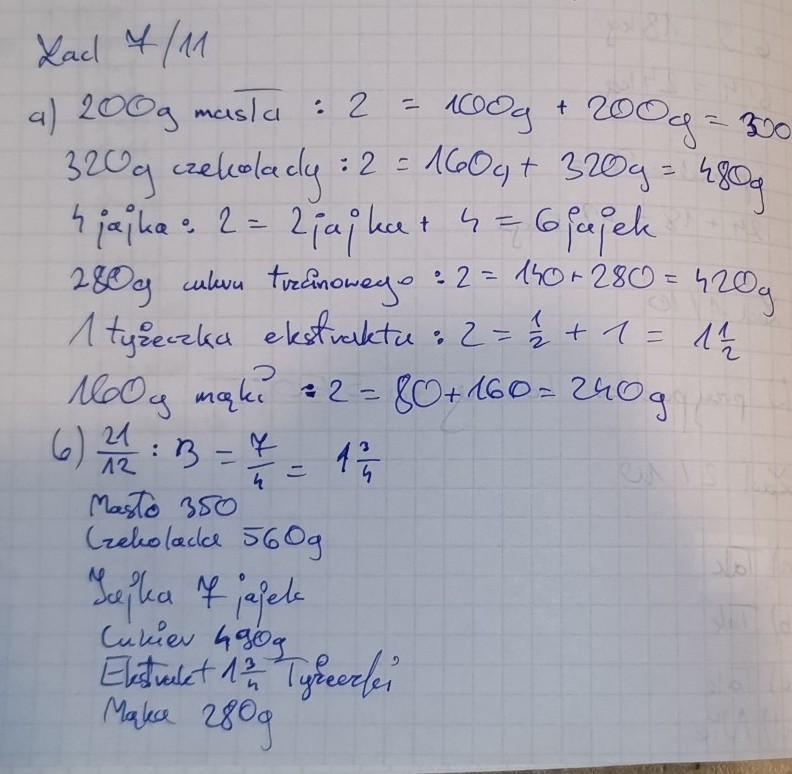 Zad 7/11
a) 200g masła : 2 = 100g + 200g = 300
320g czekolady : 2 = 160g + 320g = 480g
4 jajka : 2 = 2 jajka + 4 = 6 jajek
280g cukru trzcinowego : 2 = 140 + 280 = 420g
1 łyżeczka ekstraktu : 2 = 1/2 + 1 = 1 1/2
160g mąki : 2 = 80 + 160 = 240g
b) 21/12 : 3 = 7/4 = 1 3/4
Masło 350
Czekolada 560g
Jajka 7 jajek
Cukier 490g
Ekstrakt 1 3/4 Łyżeczki
Mąka 280g